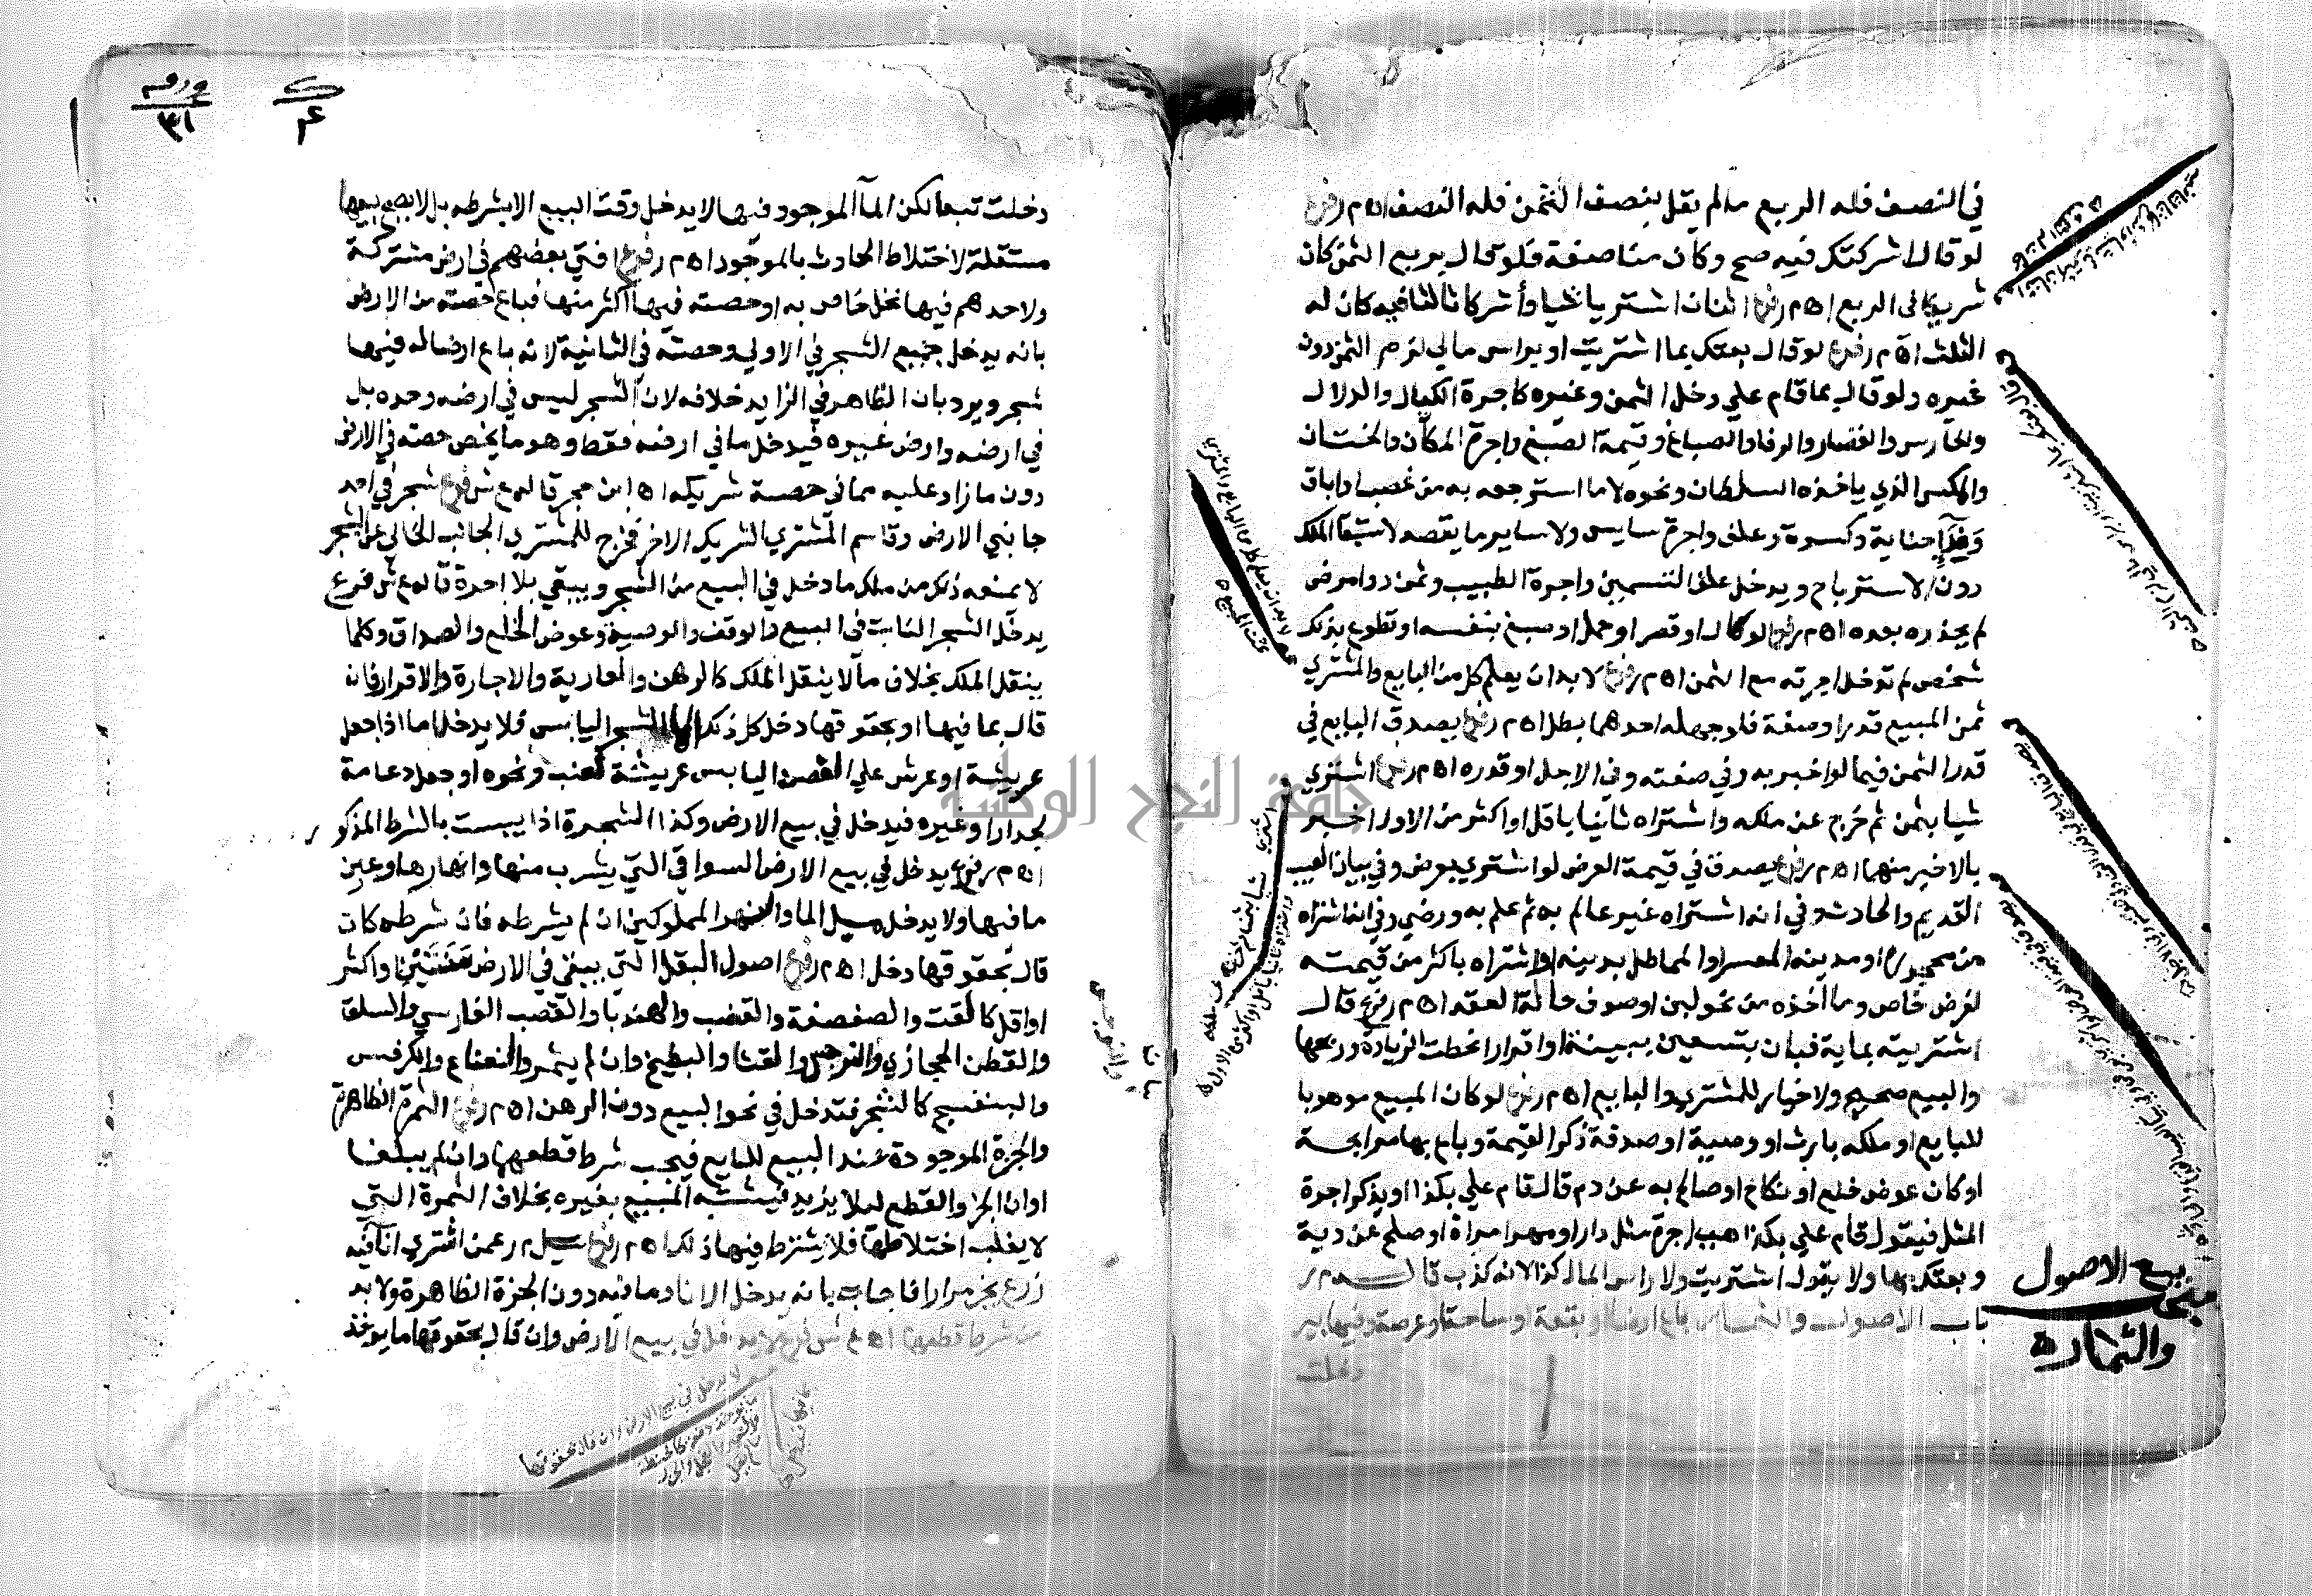 في النصف فله الربع مالم يقل بنصف الثمن فله النصف اه م ر فرع
لو قال اشركتك فيه صح وكان مناصفة فلو قال بربع الثمن كان
شريكا في الربع اه م ر فرع اثنان اشتريا شيا وأشركا ثالثا فيه كان له
الثلث اه م ر فرع لو قال بعتك بما اشتريت او براس مالي لزم الثمن دون
غيره ولو قال بما قام علي دخل الثمن وغيره كاجرة الكيال والدلال
والحارس والقصار والرفا والصباغ وقيمة الصبغ واجرة المكان والختان
والمكس الذي ياخذه السلطان ونحوه لا ما استرجعه به من غصب واباق
وفدآ جناية وكسوة وعلف واجرة سايس ولا ساير ما يقصد لاستبقآ الملك
دون الاسترباح ويدخل علف التسمين واجرة الطبيب وثمن دوا مرض
لم يحدث بعده اه م ر فرع لو كال او قصر او حمل او صبغ بنفسه او تطوع بذلك
شخص لم تدخل اجرته مع الثمن اه م ر فرع لابد ان يعلم كل من البايع والمشتري
ثمن المبيع قدرا وصفة فلو جهله احدهما بطل اه م ر فرع يصدق البايع في
قدر الثمن فيما لو اخبر به وفي صفته وفي الاجل او قدره اه م ر فرع اشتري
شيا بثمن ثم خرج عن ملكه واشتراه ثانيا باقل او اكثر من الاول اخبر
بالاخير منهما اه م ر فرع يصدق في قيمة العرض لو اشتري بعرض وفي بيان العيب
القديم والحادث وفي انه اشتراه غير عالم به ثم علم به ورضي وفي انه اشتراه
من محجوره او مدينه المعسر او المماطل بدينه او اشتراه باكثر من قيمته
لغرض خاص وما اخذه من نحو لبن او صوف حالة العقد اه م ر فرع قال
اشتريته بماية فبان بتسعين ببينة او اقرار انحطت الزيادة وربحها
والبيع صحيح ولا خيار للمشتري والبايع اه م ر فرع لو كان المبيع موهوبا
للبايع او ملكه بارث او وصية او صدقة ذكر القيمة وباع بها مرابحة
او كان عوض خلع او نكاح او صالح به عن دم قال قام علي بكذا او يذكر اجرة
المثل فيقول قام علي بكذا هب اجرة مثل دار او مهر امراة او صلح عن دية
وبعتك بها ولا يقول اشتريت ولا راس المال كذا لانه كذب قاله م ر
باب الاصول والثمار باع ارضا او بقعة او ساحة او عرصة وفيها بير
دخلت
بيع الاصول
والثمار ه
ورقه
٣١
ك
٤
دخلت تبعا لكن المآ الموجود فيها لا يدخل وقت البيع الا بشرطه بل لا يصح بيعها
مستقلة لاختلاط الحادث بالموجود اه م ر فرع افتي بعضهم في ارض مشتركة
ولاحدهم فيها نخل خاص به او حصته فيها اكثر منها فباع حصته من الارض
بانه يدخل جميع الشجر في الاولي وحصته في الثانية لانه باع ارضا له فيها
شجر ويرد بان الظاهر في الزايد خلافه لان الشجر ليس في ارضه وحده بل
في ارضه وارض غيره فيدخل ما في ارضه فقط وهو ما يخص حصته في الارض
دون ما زاد عليه مما في حصة شريكه اه ابن حجر قاله ع ش فرع شجر في احد
جانبي الارض وقاسم المشتري الشريك الاخر فخرج للمشتري الجانب الخالي عن الشجر
لا يمنعه ذلك من ملك ما دخل في البيع من الشجر ويبقي بلا اجرة قاله ع ش فرع
يدخل الشجر النابت في البيع والوقف والوصية وعوض الخلع والصداق وكلما
ينقل الملك بخلاف ما لا ينقل الملك كالرهن والعارية والاجارة والاقرار فان
قال بما فيها او بحقوقها دخل كل ذلك اما الشجر اليابس فلا يدخل اما اذا جعل
عريشة او عرش علي الغصن اليابس عريشة لعنب ونحوه او جعل دعامة
لجدار او غيره فيدخل في بيع الارض وكذا الشجرة اذا يبست بالشرط المذكور
اه م ر فرع يدخل في بيع الارض السواقي التي يشرب منها وانهارها وعين
ما فيها ولا يدخل مسيل الما والنهر المملوكين ان لم يشرطه فان شرطه كان
قال بحقوقها دخل اه م ر فرع اصول البقل التي يبقي في الارض سنتين او اكثر
او اقل كالقت والصفصفة والقضب والهندبا والقصب الفارسي والسلق
والقطن الحجازي والنرجس والقثا والبطيخ وان لم يثمر والنعناع والكرفس
والبنفسج كالشجر فتدخل في نحو البيع دون الرهن اه م ر فرع الثمرة الظاهرة
والجزة الموجودة عند البيع للبايع فيجب شرط قطعها وان لم يبلغا
اوان الجز والقطع ليلا يزيد فيشتبه المبيع بغيره بخلاف الثمرة التي
لا يغلب اختلاطها فلا يشترط فيها ذلك اه م ر فرع سيل م ر عمن اشتري انآ فيه
زرع يجز مرارا فاجاب بانه يدخل الانا وما فيه دون الجزة الظاهرة ولا بد
من شرط قطعها اه ع ش فرع لا يدخل في بيع الارض وان قال بحقوقها ما يوخذ
لا يدخل في بيع الارض وان قال بحقوقها